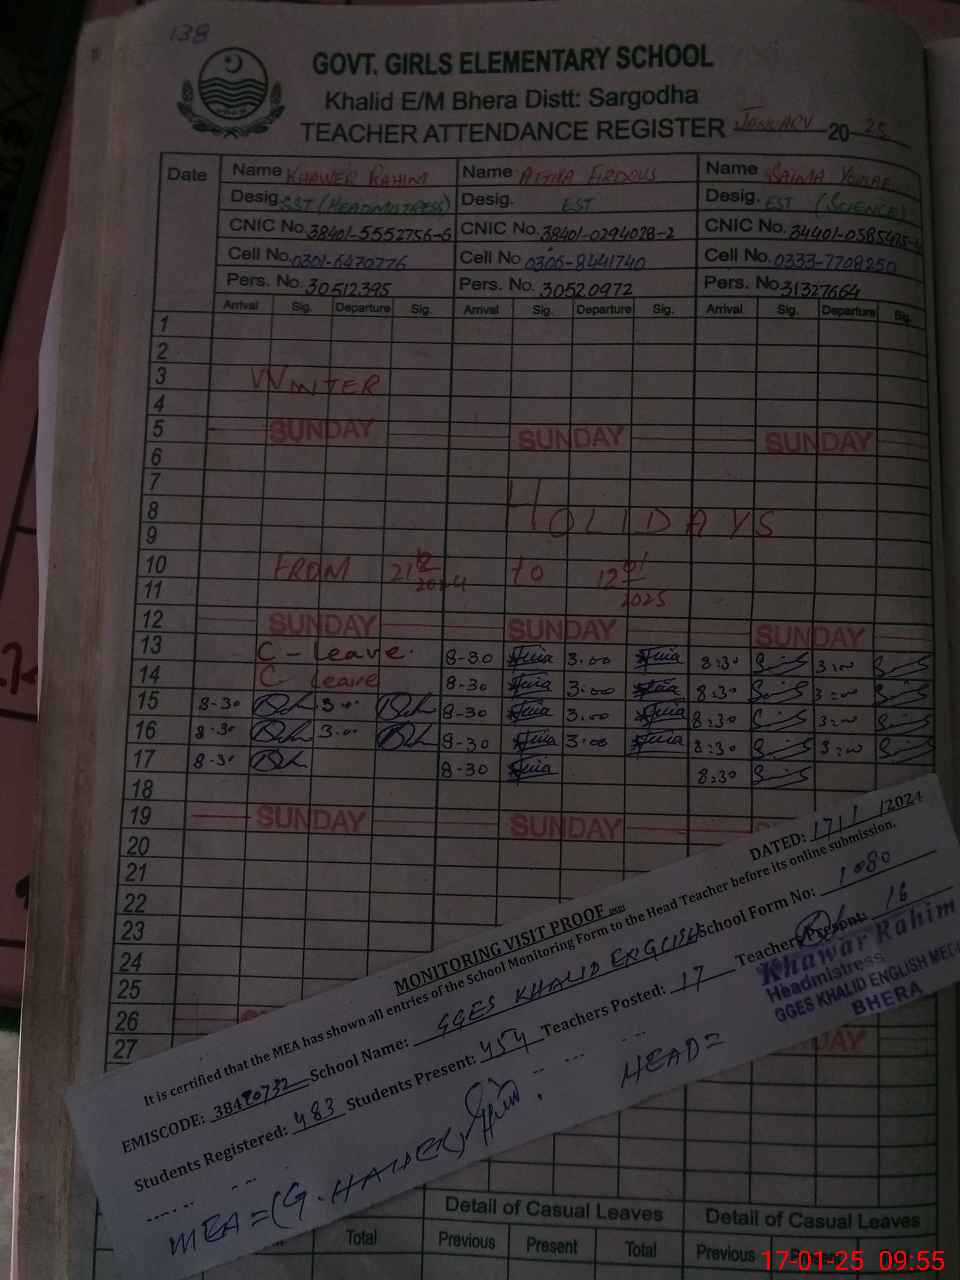 138
GOVT. GIRLS ELEMENTARY SCHOOL
Khalid E/M Bhera Distt: Sargodha
TEACHER ATTENDANCE REGISTER JANUARY 20 25
Date Name KHAWER RAHIM Name Name SAIMA
Desig. SST (HEADMISTRESS) Desig. EST Desig. EST (SCIENCE)
CNIC No. 38401-5552756-6 CNIC No. 38401-0294028-2 CNIC No. 34401-0585475-
Cell No. 0301-6470776 Cell No 0306-8441740 Cell No. 0333-7708250
Pers. No. 30512395 Pers. No. 30520972 Pers. No. 31327664
Arrival Sig. Departure Sig. Arrival Sig. Departure Sig. Arrival Sig. Departure Sig.
1
2
3 WINTER
4
5 SUNDAY SUNDAY SUNDAY
6
7
8 HOLIDAYS
9
10 FROM 21 12 2024 to 12 01 2025
11
12 SUNDAY SUNDAY SUNDAY
13 C - leave. 8-30 3.00 8:30 3:00
14 C - leave 8-30 3.00 8:30 3:00
15 8-30 3.00 8-30 3.00 8:30 3:00
16 8-30 3.00 8-30 3.00 8:30 3:00
17 8-30 8-30 8:30
18
19 SUNDAY SUNDAY
20
21
22
23
24
25
26
27
MONITORING VISIT PROOF DATED: 17/1/2024
It is certified that the MEA has shown all entries of the School Monitoring Form to the Head Teacher before its online submission.
EMISCODE: 38490732 School Name: GGES KHALID ENGLISH School Form No: 1080
Students Registered: 483 Students Present: 454 Teachers Posted: 17 Teachers Present: 16
MEA = (G. HAIDER) HEAD =
Khawar Rahim
Headmistress
GGES KHALID ENGLISH MEDI
BHERA
Detail of Casual Leaves Detail of Casual Leaves
Total Previous Present Total Previous
17-01-25 09:55